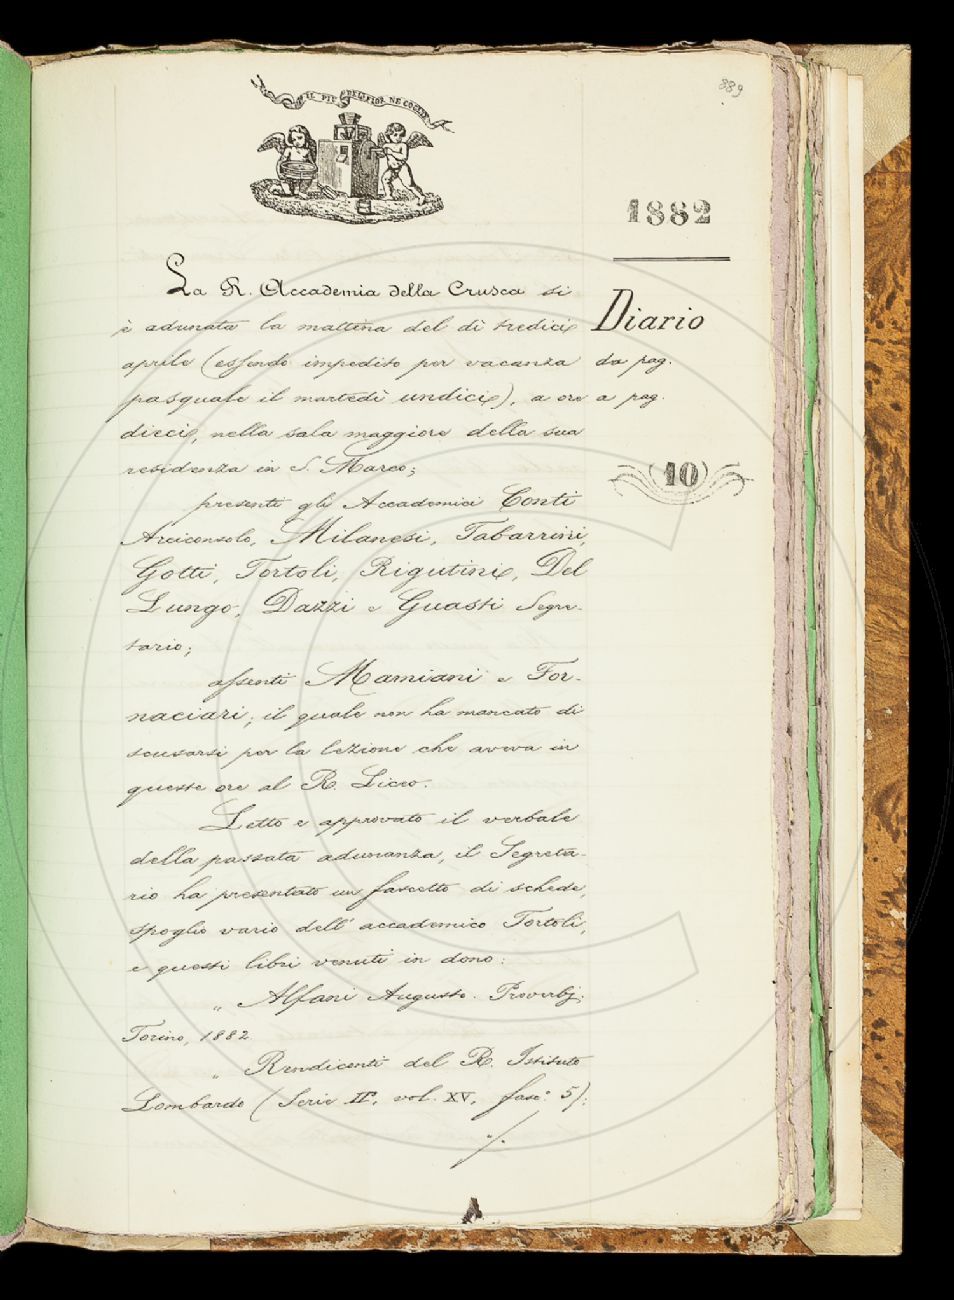 889
IL PIÙ BEL FIOR NE COGLIE
1882
La R. Accademia della Crusca si
è adunata la mattina del dì tredici
aprile (essendo impedito per vacanza
pasquale il martedì undici), a ore
dieci, nella sala maggiore della sua
residenza in S. Marco;
presenti gli Accademici Conti
Arciconsolo, Milanesi, Tabarrini,
Gotti, Tortoli, Rigutini, Del
Lungo, Dazzi e Guasti Segre-
tario;
assenti Mamiani e For-
naciari; il quale non ha mancato di
scusarsi per la lezione che aveva in
queste ore al R. Liceo.
Letto e approvato il verbale
della passata adunanza, il Segreta-
rio ha presentato un fascetto di schede,
spoglio vario dell' accademico Tortoli,
e questi libri venuti in dono:
„ Alfani Augusto. Proverbj;
Torino, 1882
„ Rendiconti del R. Istituto
Lombardo (Serie II, vol. XV, fasc. 5):
./.
Diario
da pag.
a pag.
(10)